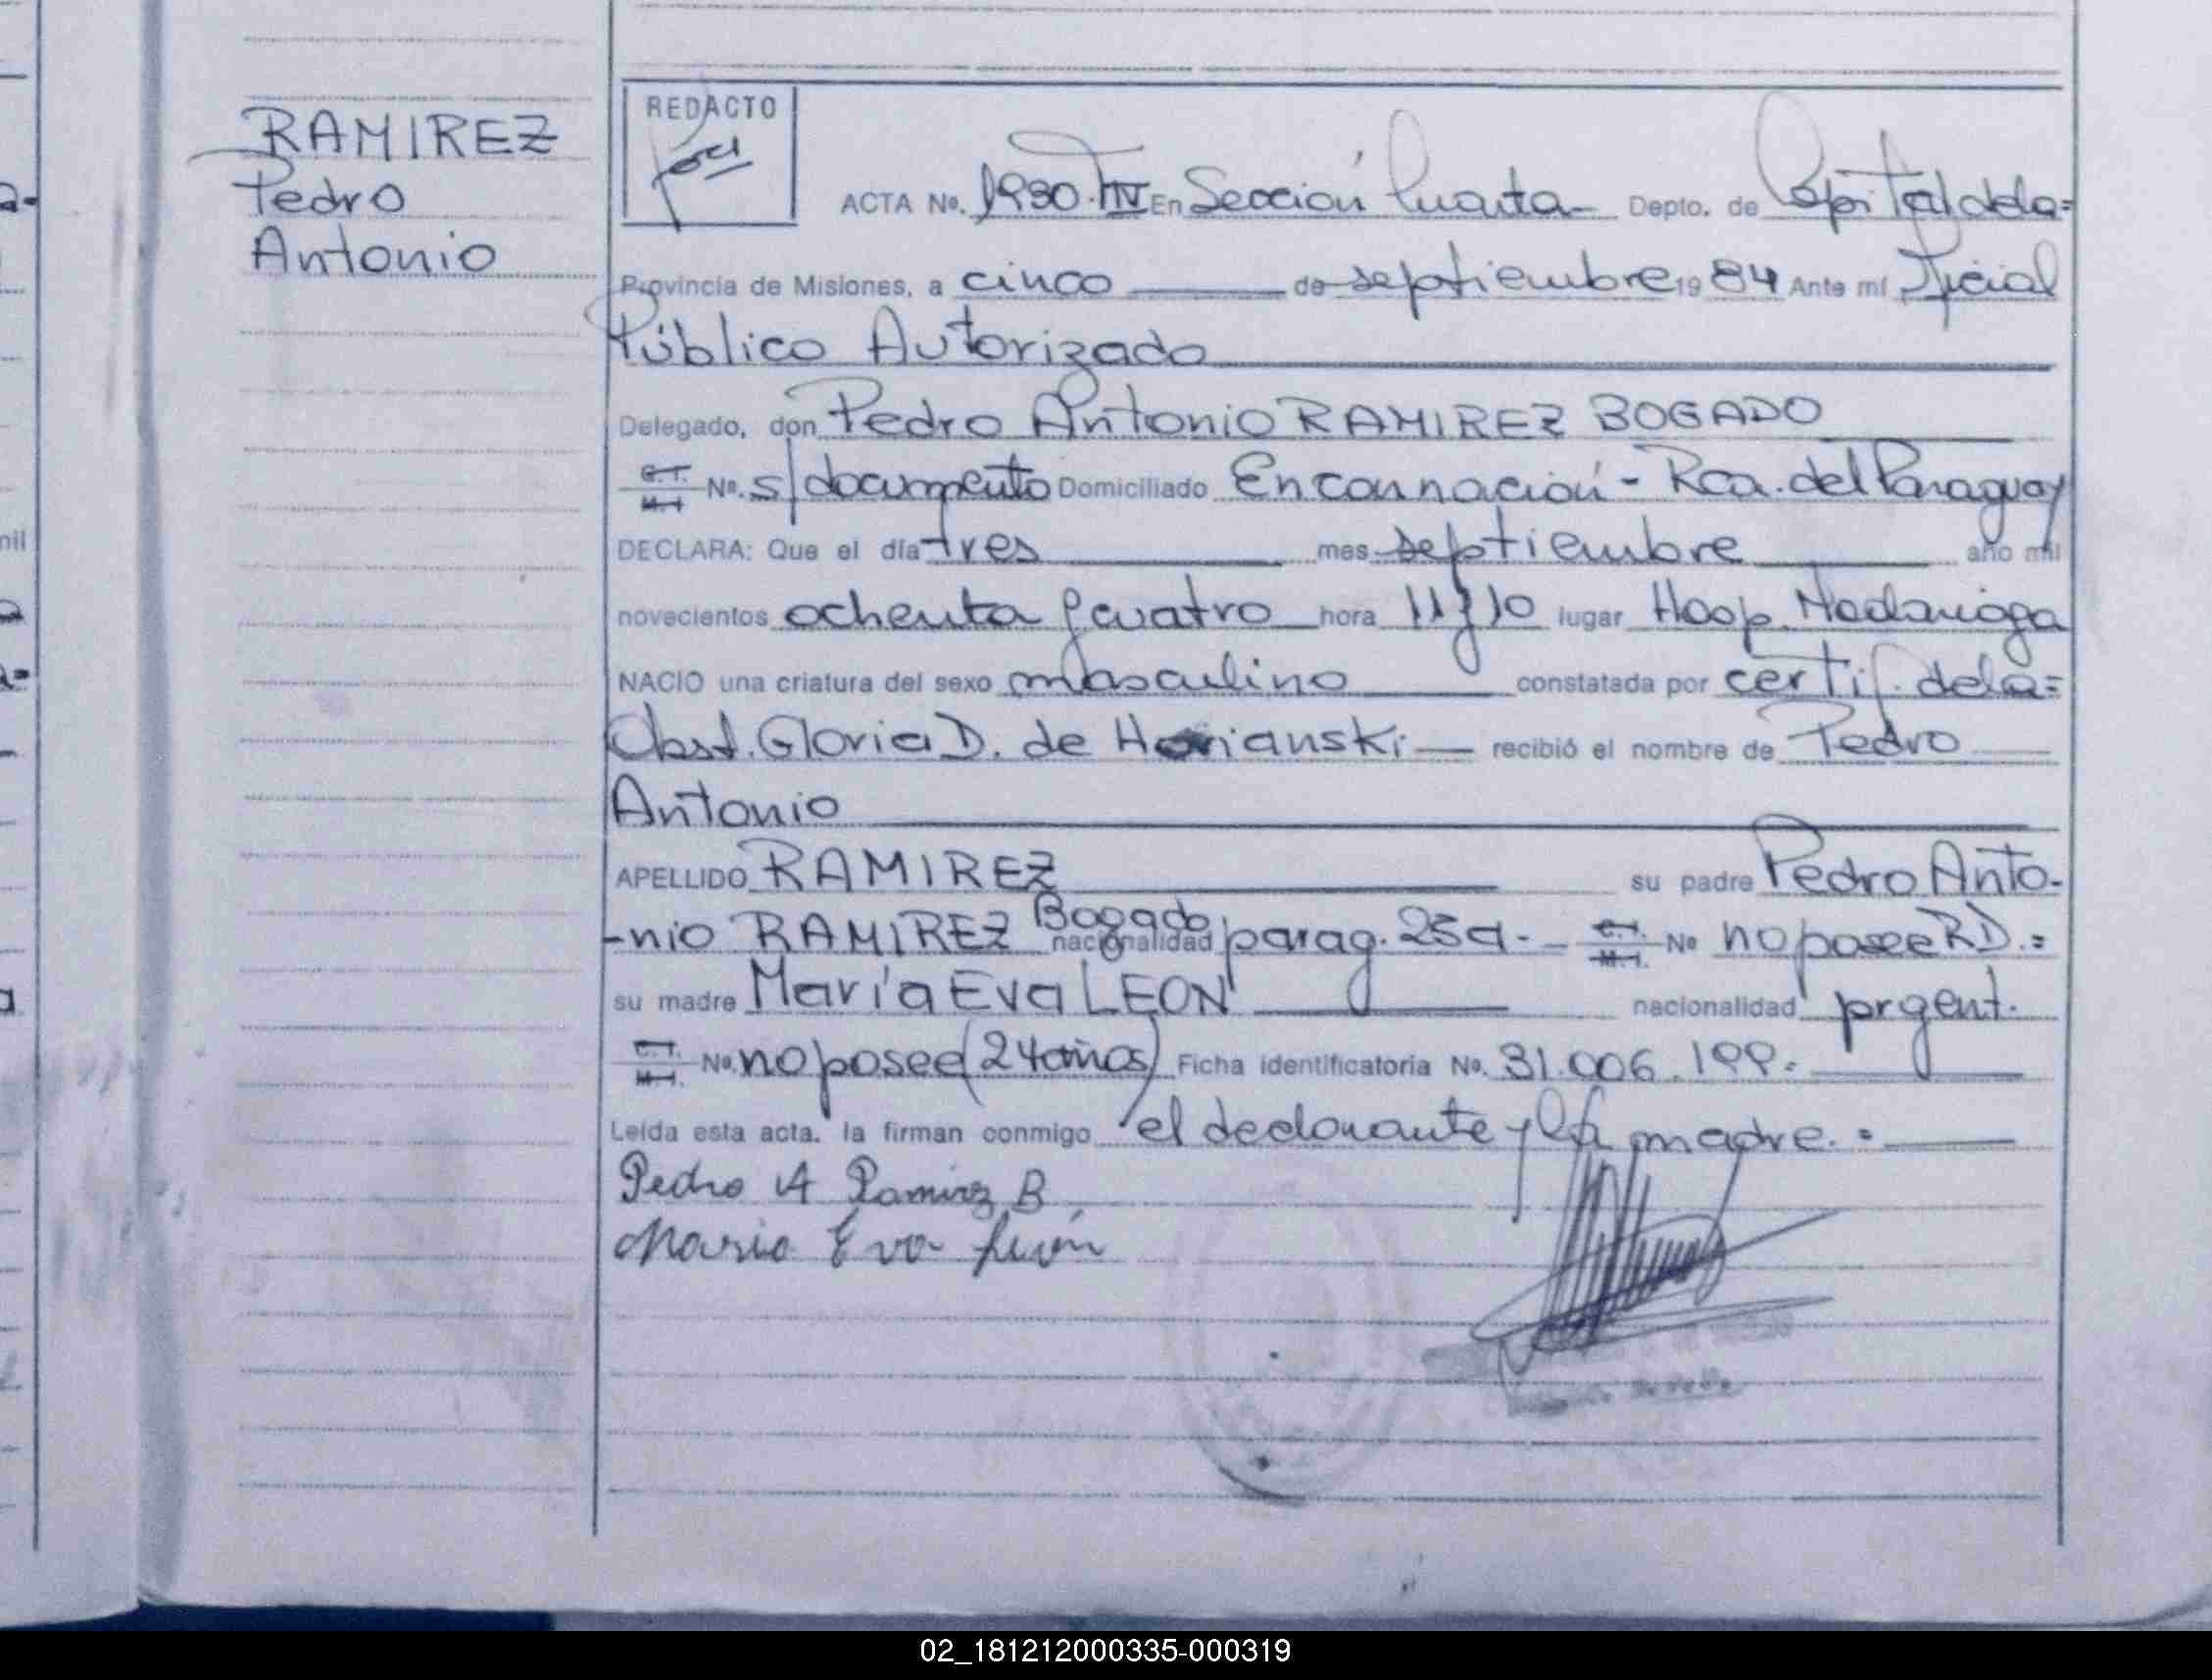 RAMIREZ
Pedro
Antonio
REDACTO
ACTA No. 1930·TIV En Sección Cuarta - Depto. de Capital de la =
Provincia de Misiones, a cinco de septiembre 19 84 Ante mí Oficial
Público Autorizado
Delegado, don Pedro Antonio RAMIREZ BOGADO
C.I. M.I. No. s/documento Domiciliado Encarnación - Rca. del Paraguay
DECLARA: Que el día tres mes septiembre año mil
novecientos ochenta y cuatro hora 11 y 10 lugar Hosp. Madariaga
NACIO una criatura del sexo masculino constatada por certif. de la =
Obst. Gloria D. de Horianski recibió el nombre de Pedro
Antonio
APELLIDO RAMIREZ su padre Pedro Anto-
-nio RAMIREZ Bogado nacionalidad parag. 25a - C.I. M.I. No no posee RD. =
su madre María Eva LEON nacionalidad argent.
C.I. M.I. No. no posee (24 años) Ficha identificatoria No. 31.006.199 =
Leída esta acta. la firman conmigo el declarante y la madre. =
Pedro A Ramirez B
Maria Eva León
mil
02_181212000335-000319